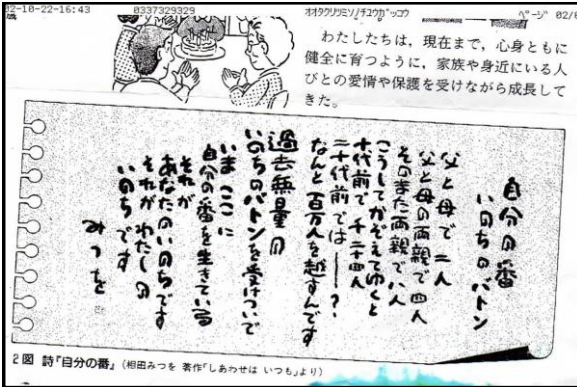 02-10-22-16:43　0337329329　オオタクリツミソノチユウガッコウ　ページ 02/0
わたしたちは，現在まで，心身ともに
健全に育つように，家族や身近にいる人
びとの愛情や保護を受けながら成長して
きた。
自分の番
いのちのバトン
父と母で二人
父と母の両親で四人
そのまた両親で八人
こうしてかぞえてゆくと
十代前で千二十四人
二十代前では――？
なんと百万人を越すんです
過去無量の
いのちのバトンを受けついで
いまここに
自分の番を生きている
それが
あなたのいのちです
それがわたしの
いのちです
みつを
2図 詩『自分の番』（相田みつを 著作『しあわせは いつも』より）